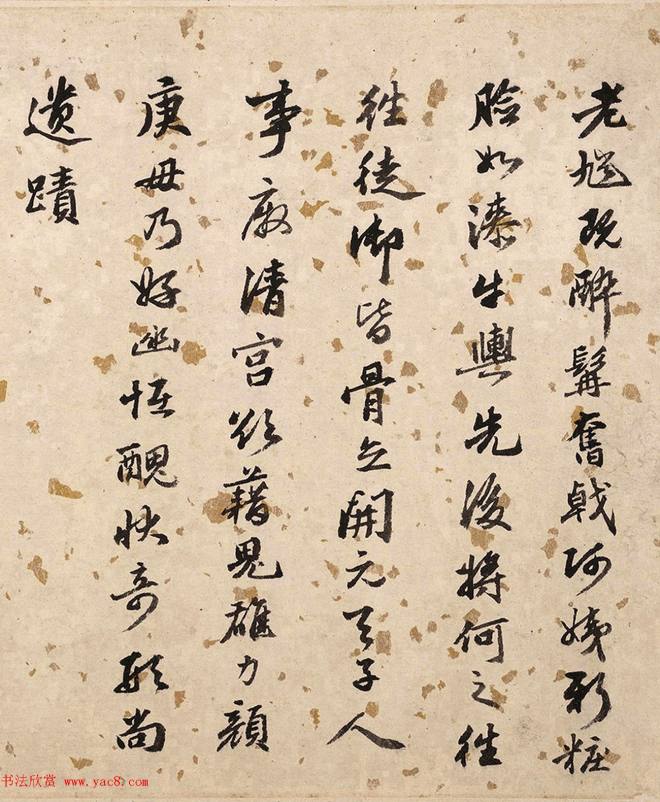 老馗既醉髯奮戟阿姨新粧
臉如漆牛輿先後將何之往
往徒御皆骨立開元天子人
事廢清宮欲藉鬼雄力顏
庚毋乃好幽怪醜狀奇形尚
遺蹟
书法欣赏 www.yac8.com